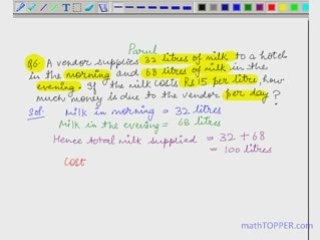 Parul
Q6. A vendor supplies 32 litres of milk to a hotel
in the morning and 68 litres of milk in the
evening. If the milk costs Rs 15 per litre, how
much money is due to the vendor per day?
Sol: Milk in morning = 32 litres
Milk in the evening = 68 litres
Hence total milk supplied = 32 + 68
= 100 litres
Cost
mathTOPPER.com